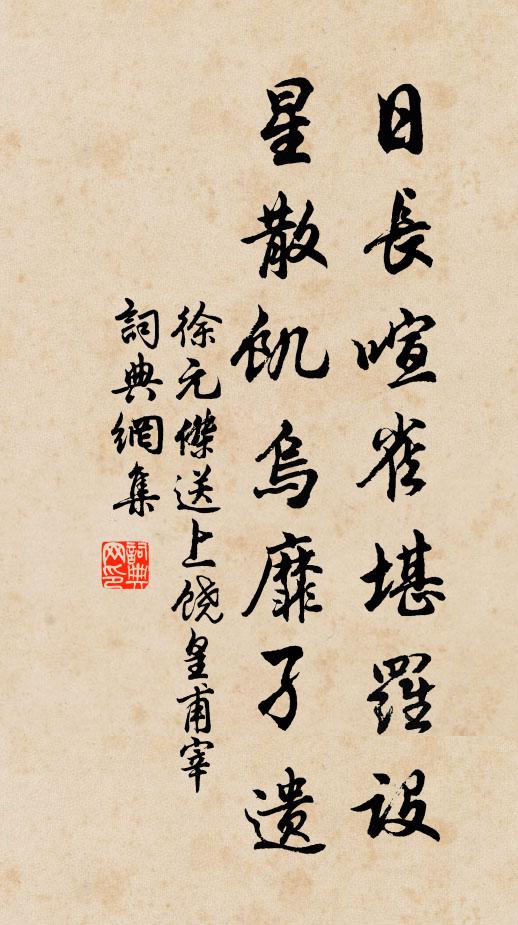 日長喧雀堪羅設
星散飢烏靡孑遺
徐元傑送上饒皇甫宰
詞典網集
詞典网印